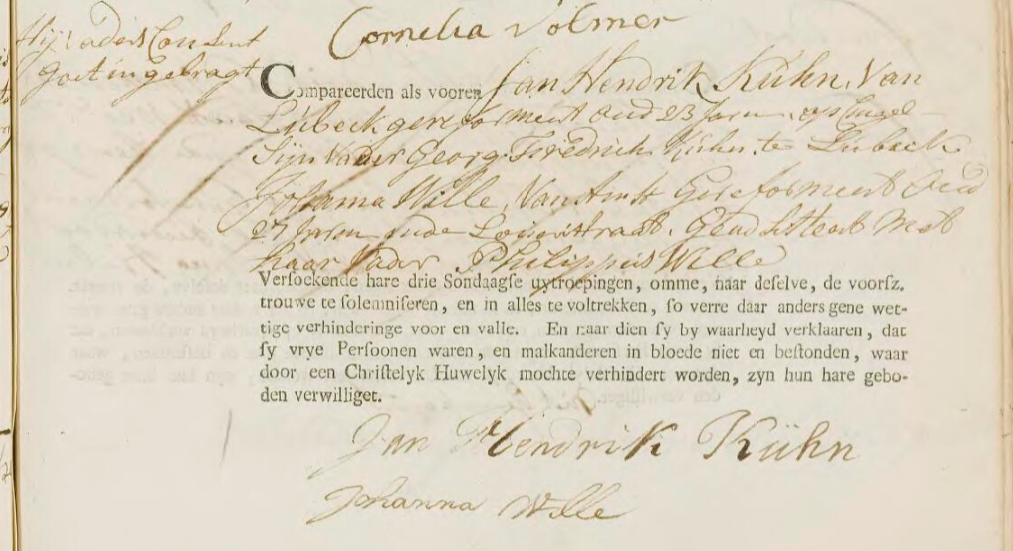 Cornelia Volmer
Hij vaders Consent
goet ingebragt
Compareerden als vooren Jan Hendrik Kühn, Van
Lubeck gereformeert oud 23 Jaren, op Cingel
Sijn Vader Georg Friedrich Kühn, te Lubeck
Johanna Wille, Van Amst Gereformeert Oud
27 Jaren, Geadsisteert Met
haar Vader Philippus Wille
Versoekende hare drie Sondaagse uytroepingen, omme, naar deselve, de voorsz.
trouwe te solemniseren, en in alles te voltrekken, so verre daar anders gene wet-
tige verhinderinge voor en valle. En naar dien sy by waarheyd verklaaren, dat
sy vrye Persoonen waren, en malkanderen in bloede niet en bestonden, waar
door een Christelyk Huwelyk mochte verhindert worden, zyn hun hare gebo-
den verwilliget.
Jan Hendrik Kühn
Johanna Wille